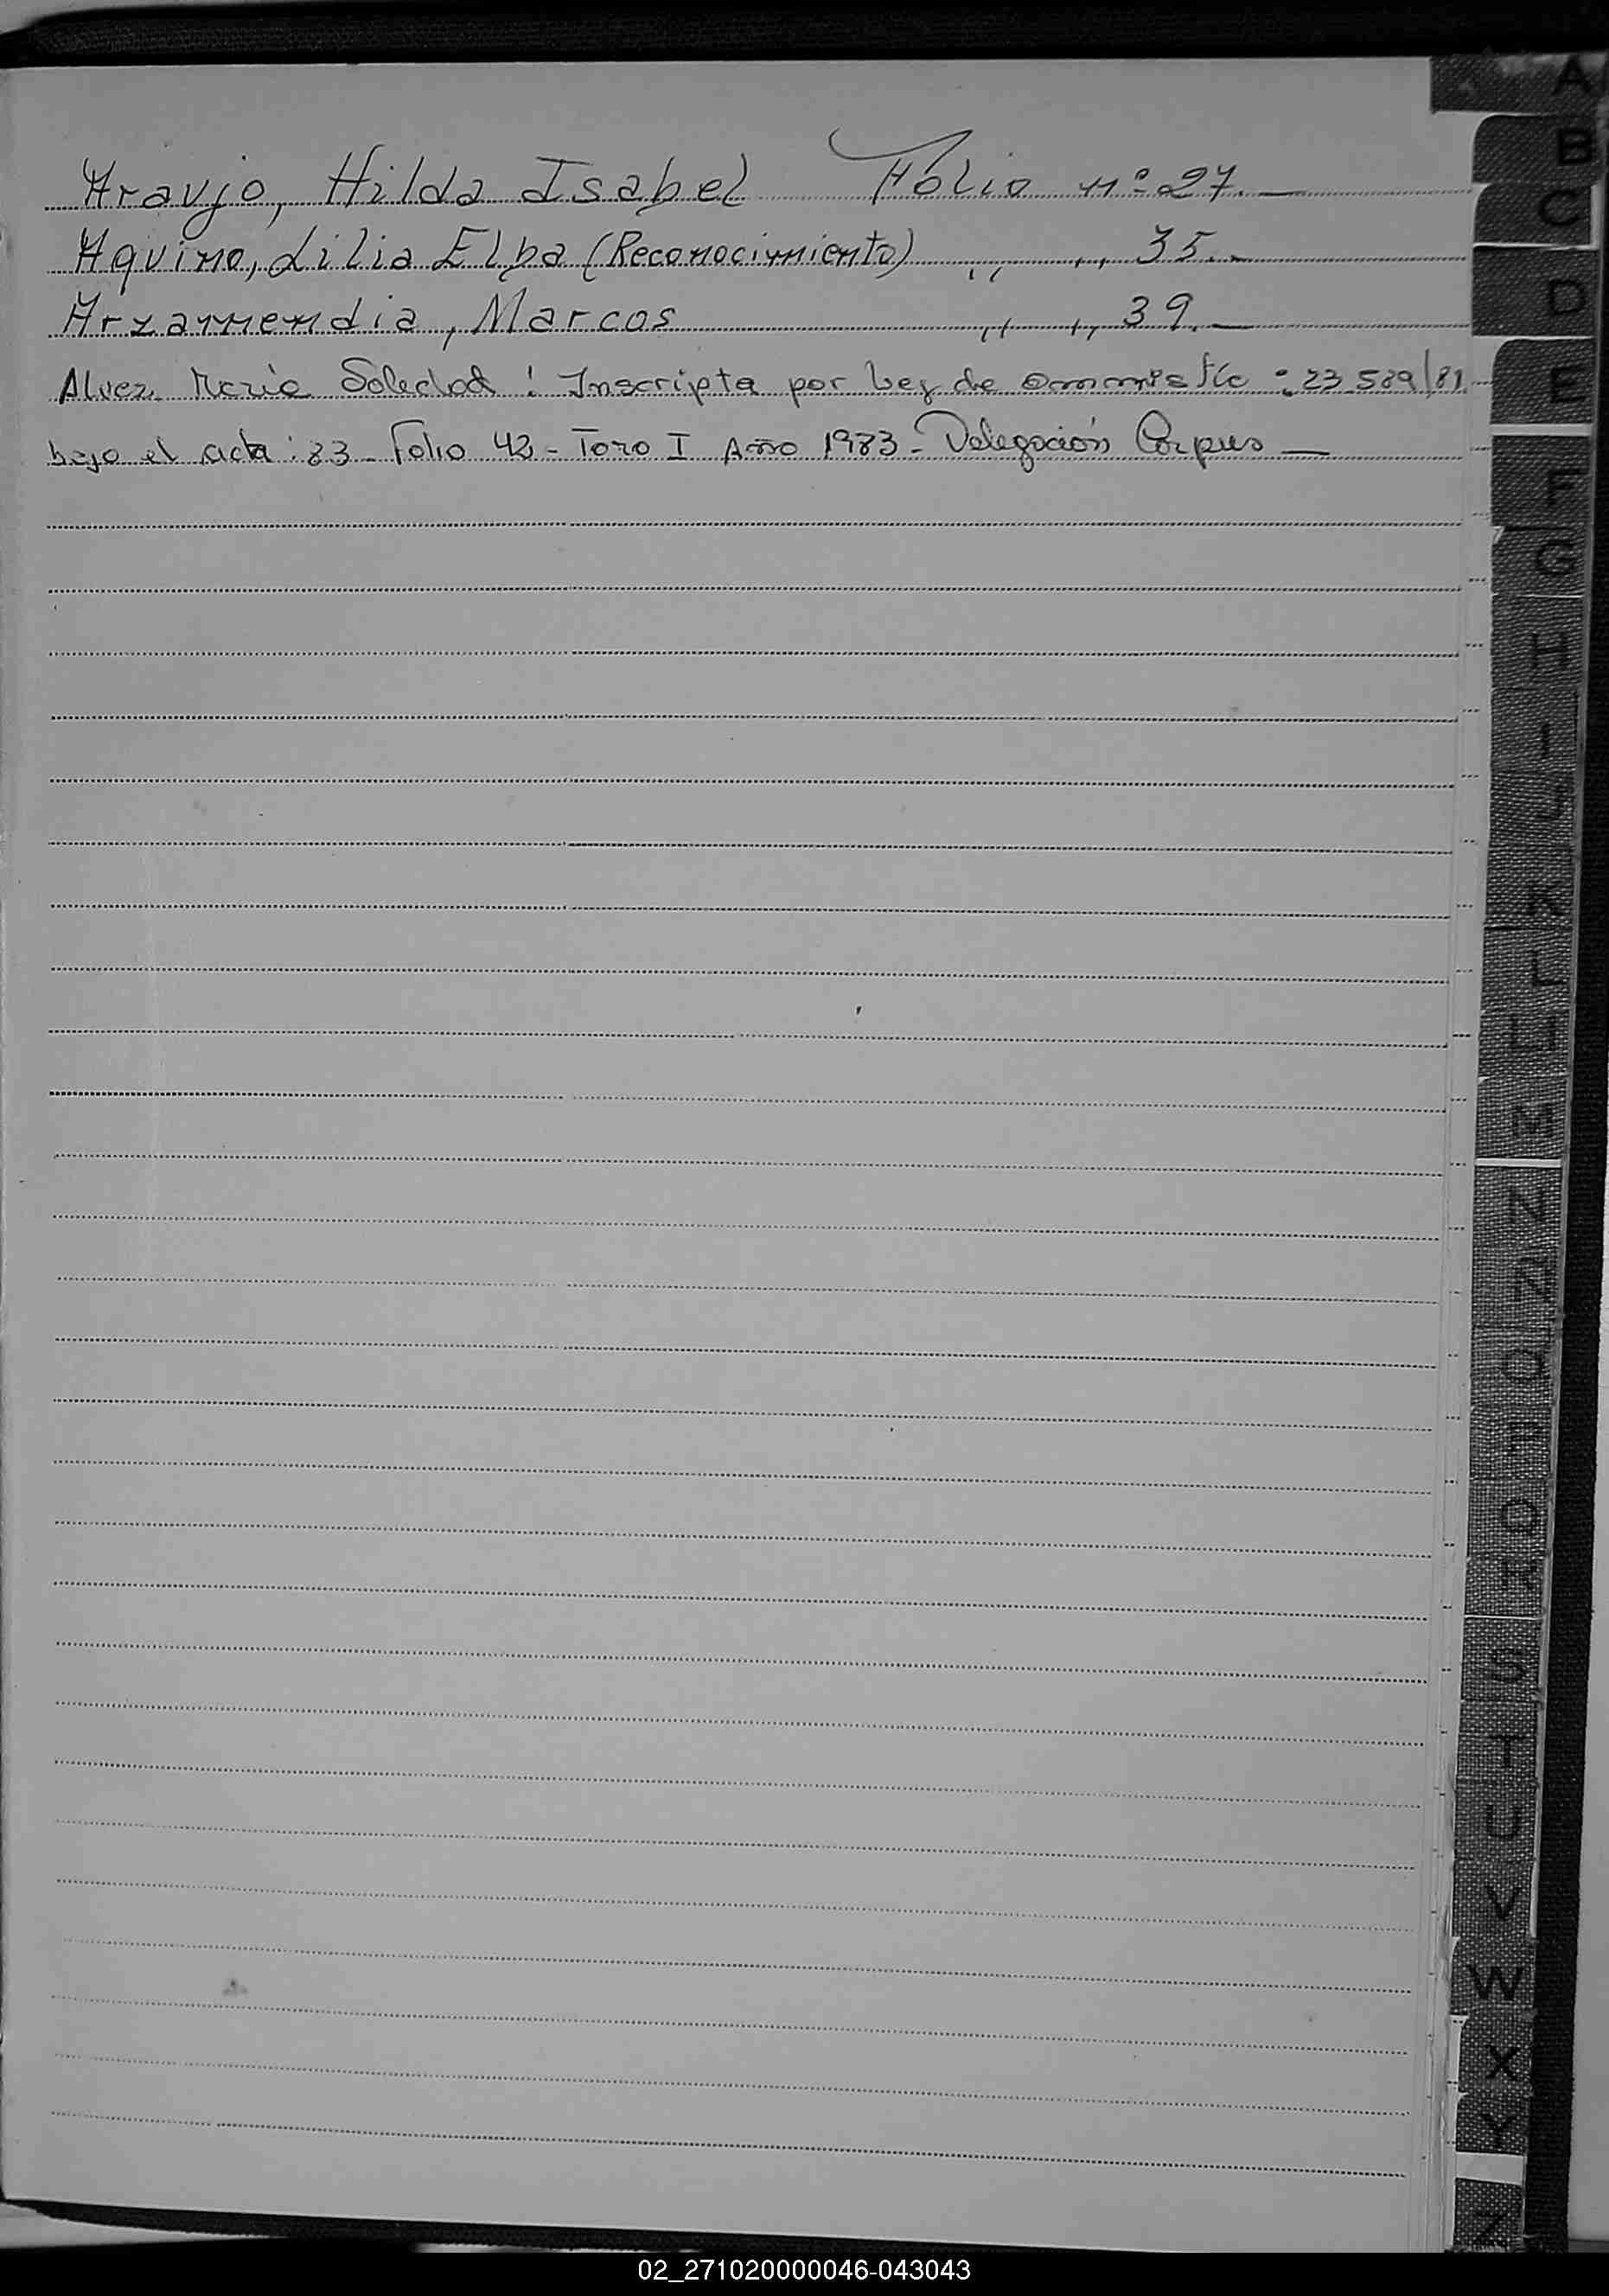 Araujo, Hilda Isabel Folio nº 27.—
Aquino, Lilia Elba (Reconocimiento) ,, ,, 35.-
Arzamendia, Marcos ,, ,, 39.—
Alvez, Maria Soledad : Inscripta por Ley de ammistía : 23
bajo el acta : 83 - Folio 43 - Tomo I Año 1983 - Delegación Corpus —
A
B
C
D
E
F
G
H
I
J
K
L
LL
M
N
Ñ
O
P
Q
R
S
T
U
V
W
X
Y
Z
02_271020000046-043043